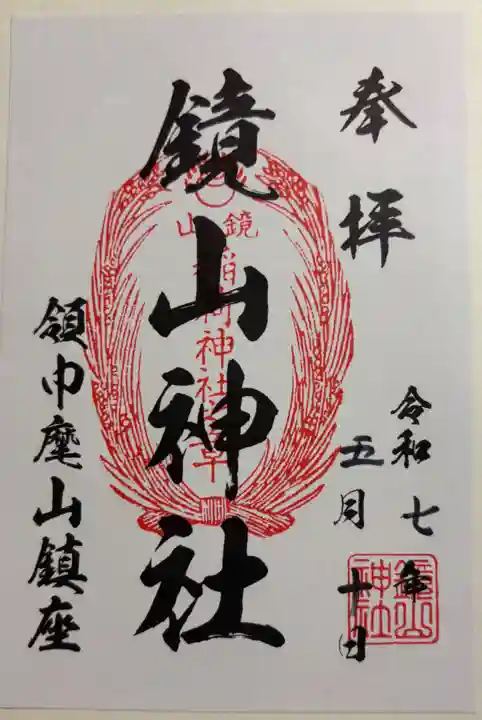 奉拝
令和七年
五月十日
鏡山神社
鏡山
稲荷神社
領巾麾山鎮座
鏡山
神社